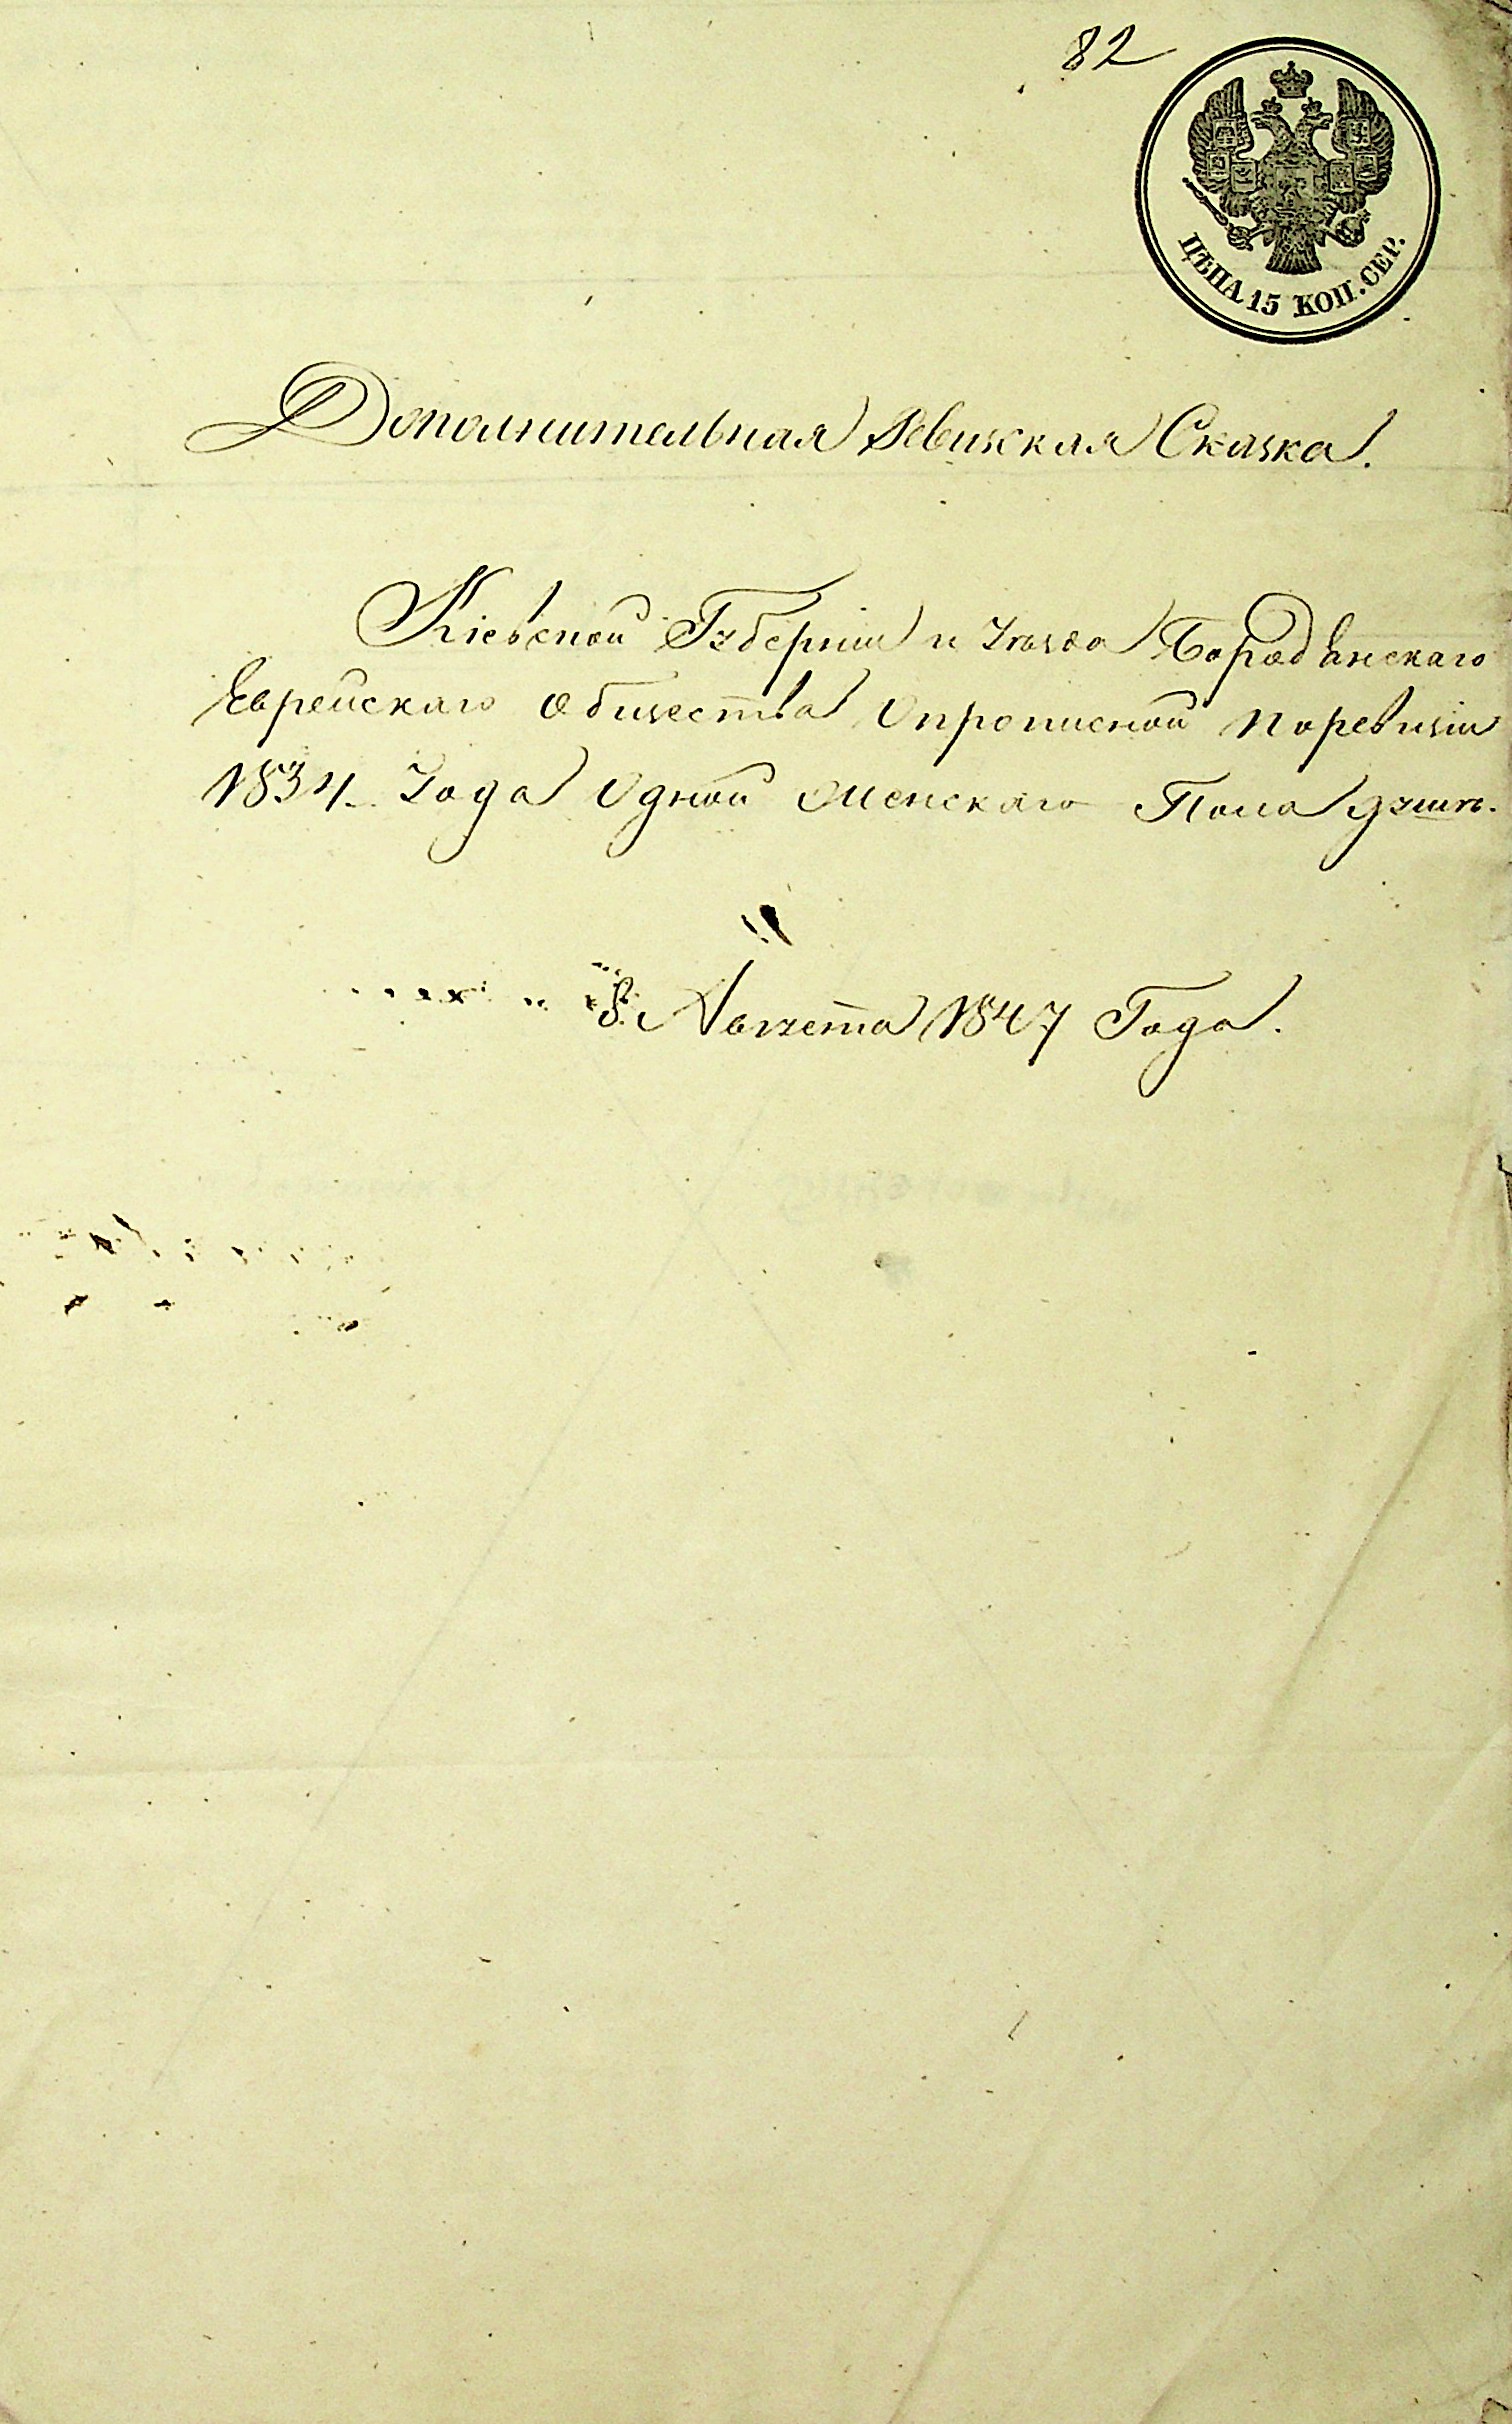 82
ЦѢНА 15 КОП. СЕР.
Дополнительная Ревизкая Сказка.
Кіевской Губерніи и Уѣзда Бородянскаго
Еврейскаго Общества Опрописной поревизіи
1834. Года Одной Женскаго Пола душѣ.
8. Августа 1847 Года.